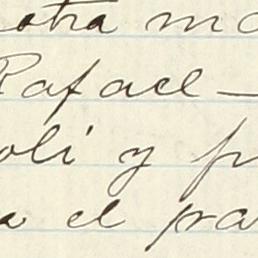 otra ma
Rafael —
oli y p
a el pa